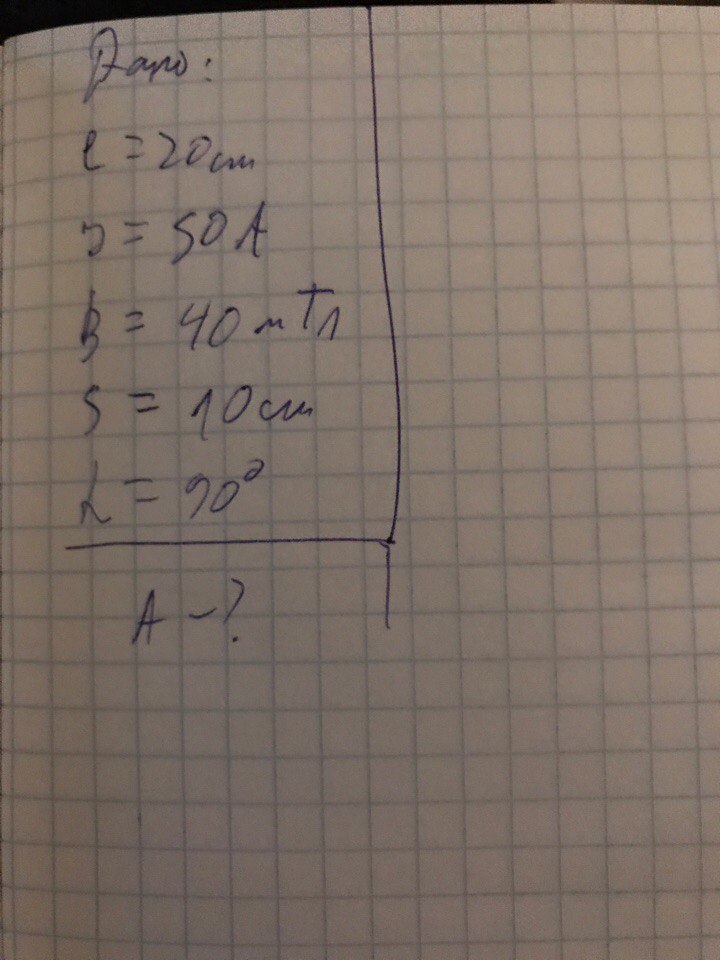 Дано:
l = 20 см
I = 50 А
B = 40 мТл
S = 10 см
α = 90°
A - ?